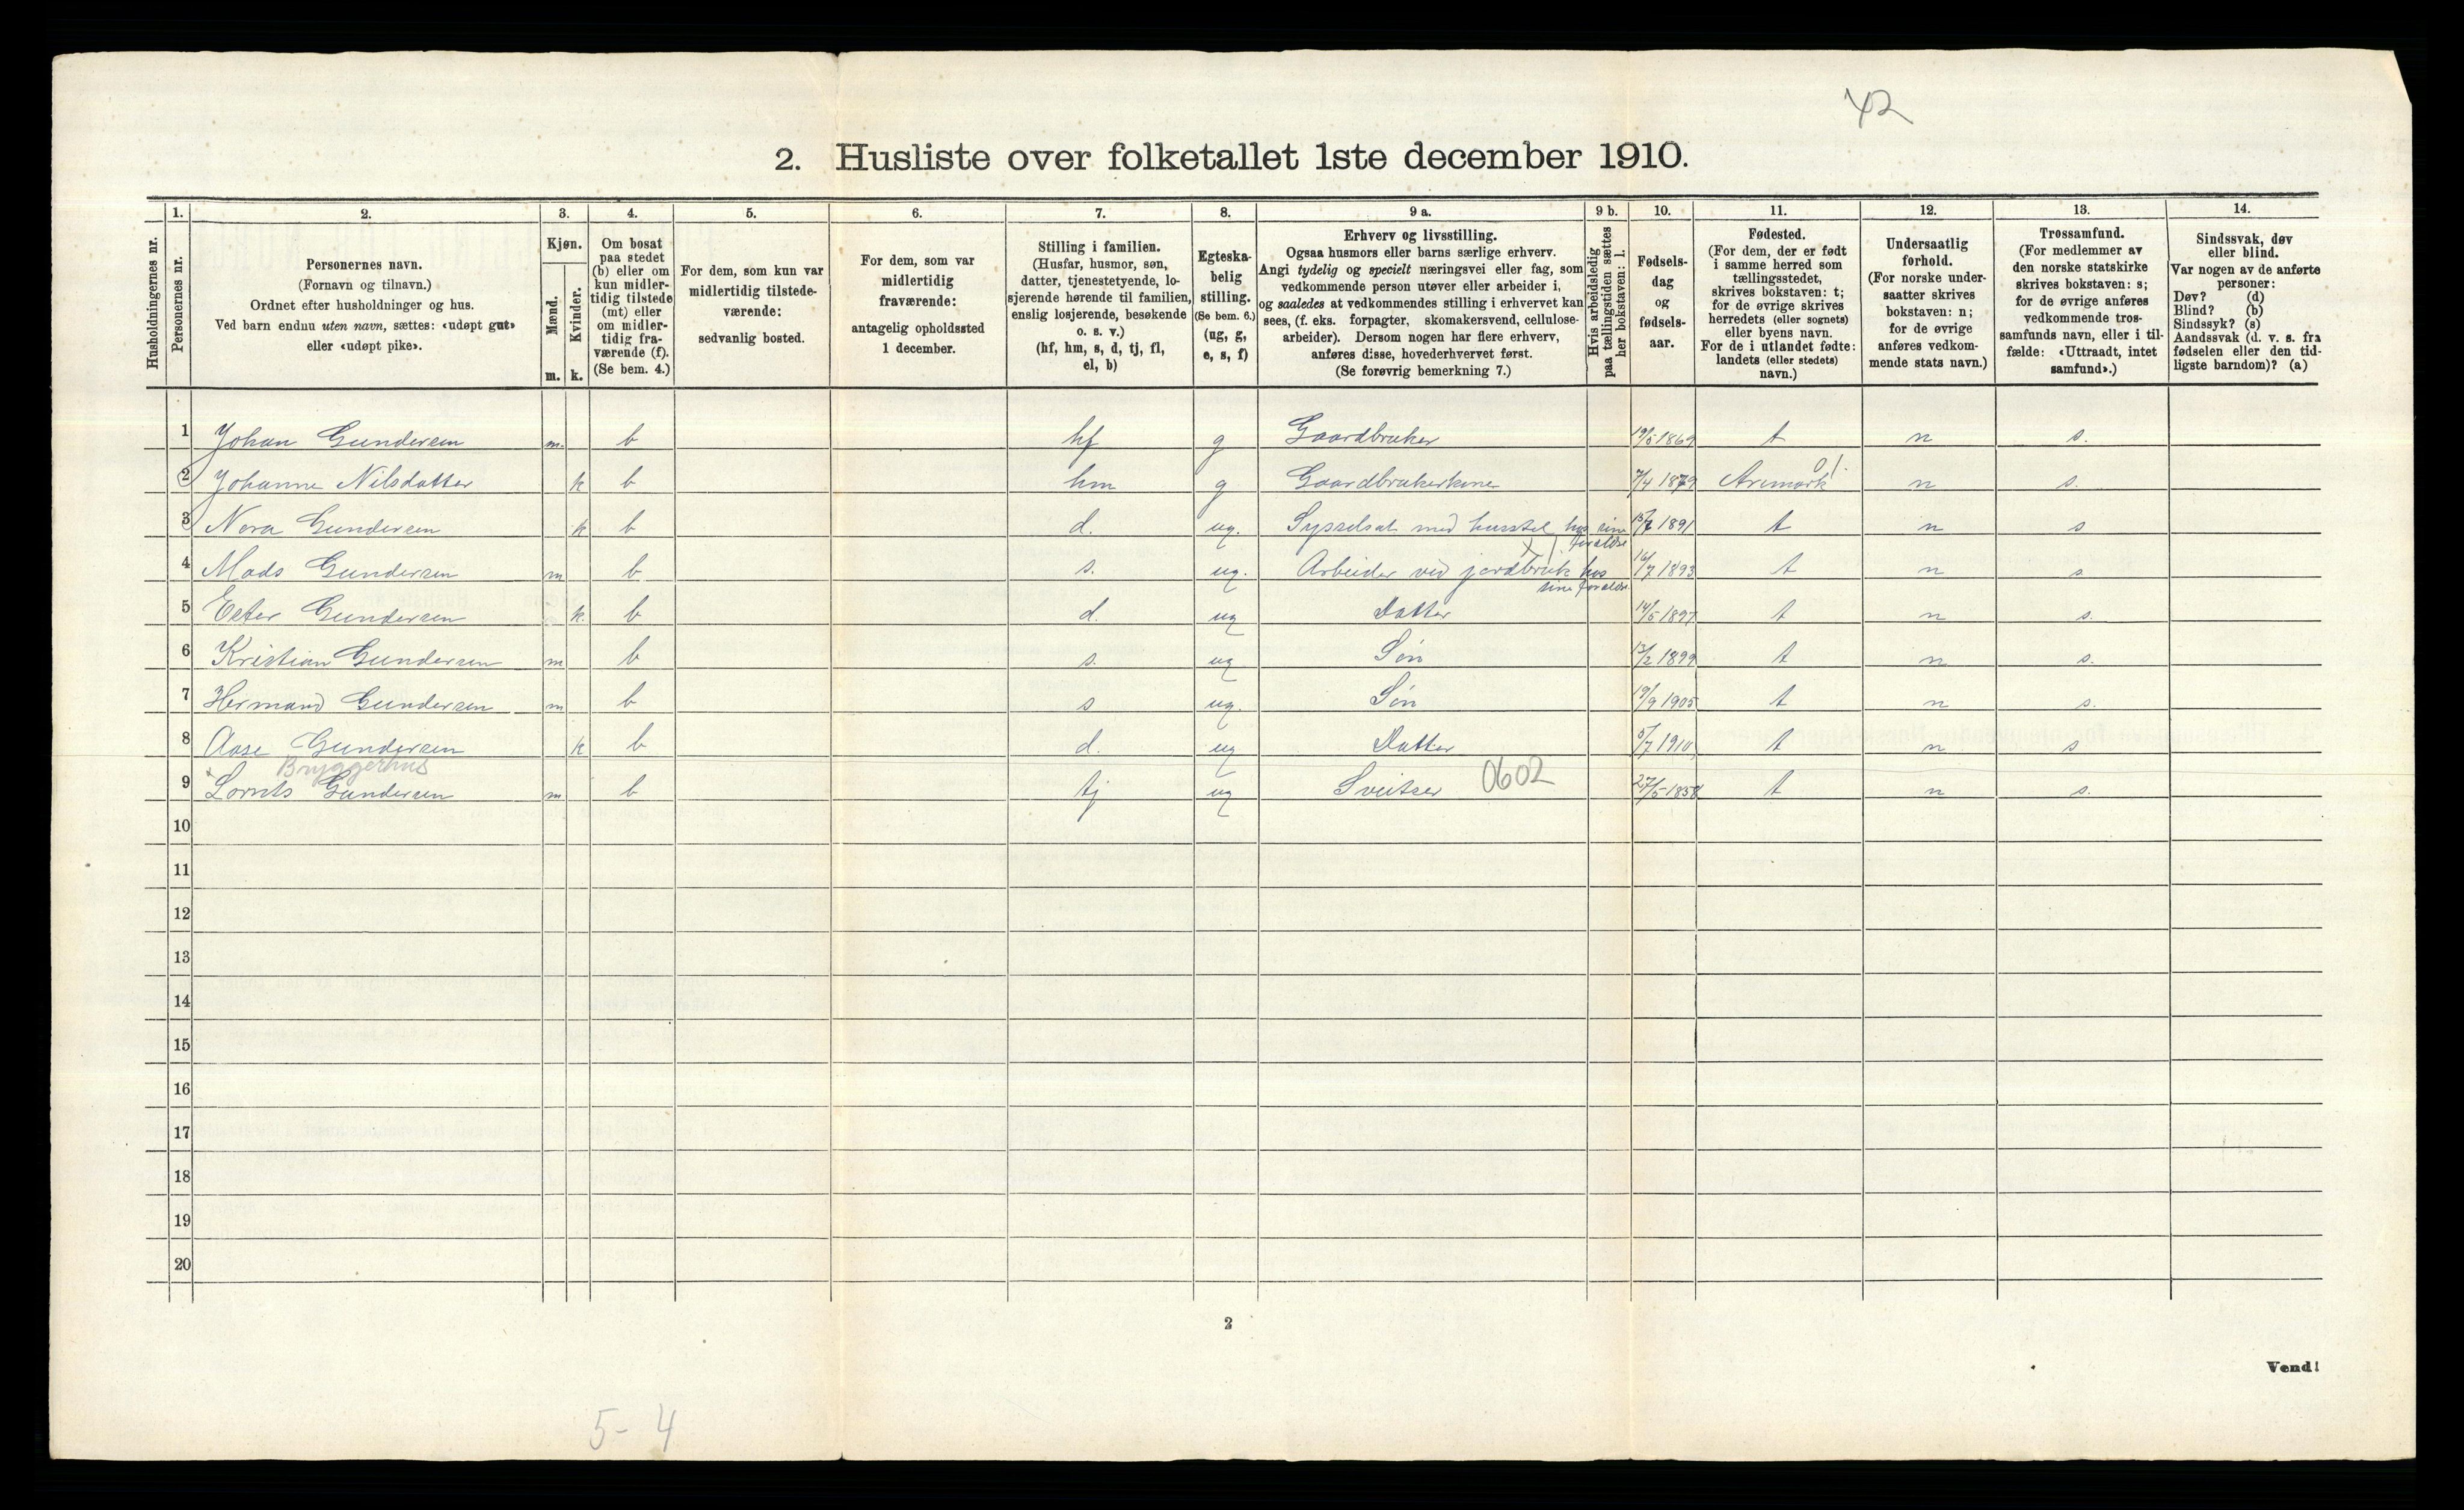 42
2. Husliste over folketallet 1ste december 1910.
Husholdningernes nr.
1.
Personernes nr.
2.
Personernes navn.
(Fornavn og tilnavn.)
Ordnet efter husholdninger og hus.
Ved barn endnu uten navn, sættes: «udøpt gut»
eller «udøpt pike».
3.
Kjøn.
Mænd.
Kvinder.
m. k.
4.
Om bosat
paa stedet
(b) eller om
kun midler-
tidig tilstede
(mt) eller
om midler-
tidig fra-
værende (f).
(Se bem. 4.)
5.
For dem, som kun var
midlertidig tilstede-
værende:
sedvanlig bosted.
6.
For dem, som var
midlertidig
fraværende:
antagelig opholdssted
1 december.
7.
Stilling i familien.
(Husfar, husmor, søn,
datter, tjenestetyende, lo-
sjerende hørende til familien,
enslig losjerende, besøkende
o. s. v.)
(hf, hm, s, d, tj, fl,
el, b)
8.
Egteska-
belig
stilling.
(Se bem. 6.)
(ug, g,
e, s, f)
9 a.
Erhverv og livsstilling.
Ogsaa husmors eller barns særlige erhverv.
Angi tydelig og specielt næringsvei eller fag, som
vedkommende person utøver eller arbeider i,
og saaledes at vedkommendes stilling i erhvervet kan
sees, (f. eks. forpagter, skomakersvend, cellulose-
arbeider). Dersom nogen har flere erhverv,
anføres disse, hovederhvervet først.
(Se forøvrig bemerkning 7.)
9 b.
Hvis arbeidsledig
paa tællingstiden sættes
her bokstaven: l.
10.
Fødsels-
dag
og
fødsels-
aar.
11.
Fødested.
(For dem, der er født
i samme herred som
tællingsstedet,
skrives bokstaven: t;
for de øvrige skrives
herredets (eller sognets)
eller byens navn.
For de i utlandet fødte:
landets (eller stedets)
navn.)
12.
Undersaatlig
forhold.
(For norske under-
saatter skrives
bokstaven: n;
for de øvrige
anføres vedkom-
mende stats navn.)
13.
Trossamfund.
(For medlemmer av
den norske statskirke
skrives bokstaven: s;
for de øvrige anføres
vedkommende tros-
samfunds navn, eller i til-
fælde: «Uttraadt, intet
samfund».)
14.
Sindssvak, døv
eller blind.
Var nogen av de anførte
personer:
Døv? (d)
Blind? (b)
Sindssyk? (s)
Aandssvak (d. v. s. fra
fødselen eller den tid-
ligste barndom)? (a)
1 Johan Gundersen m. b hf g Gaardbruker 19/5 1869 t n s.
2 Johanne Nilsdatter k b hm g Gaardbrukerkone 7/4 1879 Aremark 01. n s.
3 Nora Gundersen k b d. ug. Sysselsat med husstel hos sine foraldre 1891 t n s
4 Mads Gundersen m b s. ug. Arbeider ved jordbruk hos sine foraldre 16/7 1893 t n s
5 Ester Gundersen k. b d. ug Datter 14/5 1897 t n s.
6 Kristian Gundersen m b s. ug Søn 13/2 1899 t n s.
7 Hermand Gundersen m b s ug. Søn 19/9 1905 t n s.
8 Aase Gundersen k b d. ug Datter 5/7 1910 t n s
Bryggerhus
9 Lornts Gundersen m b tj ug Sveitser 0602 27/5 1858 t n s.
10
11
12
13
14
15
16
17
18
19
20
2
Vend!
5-4